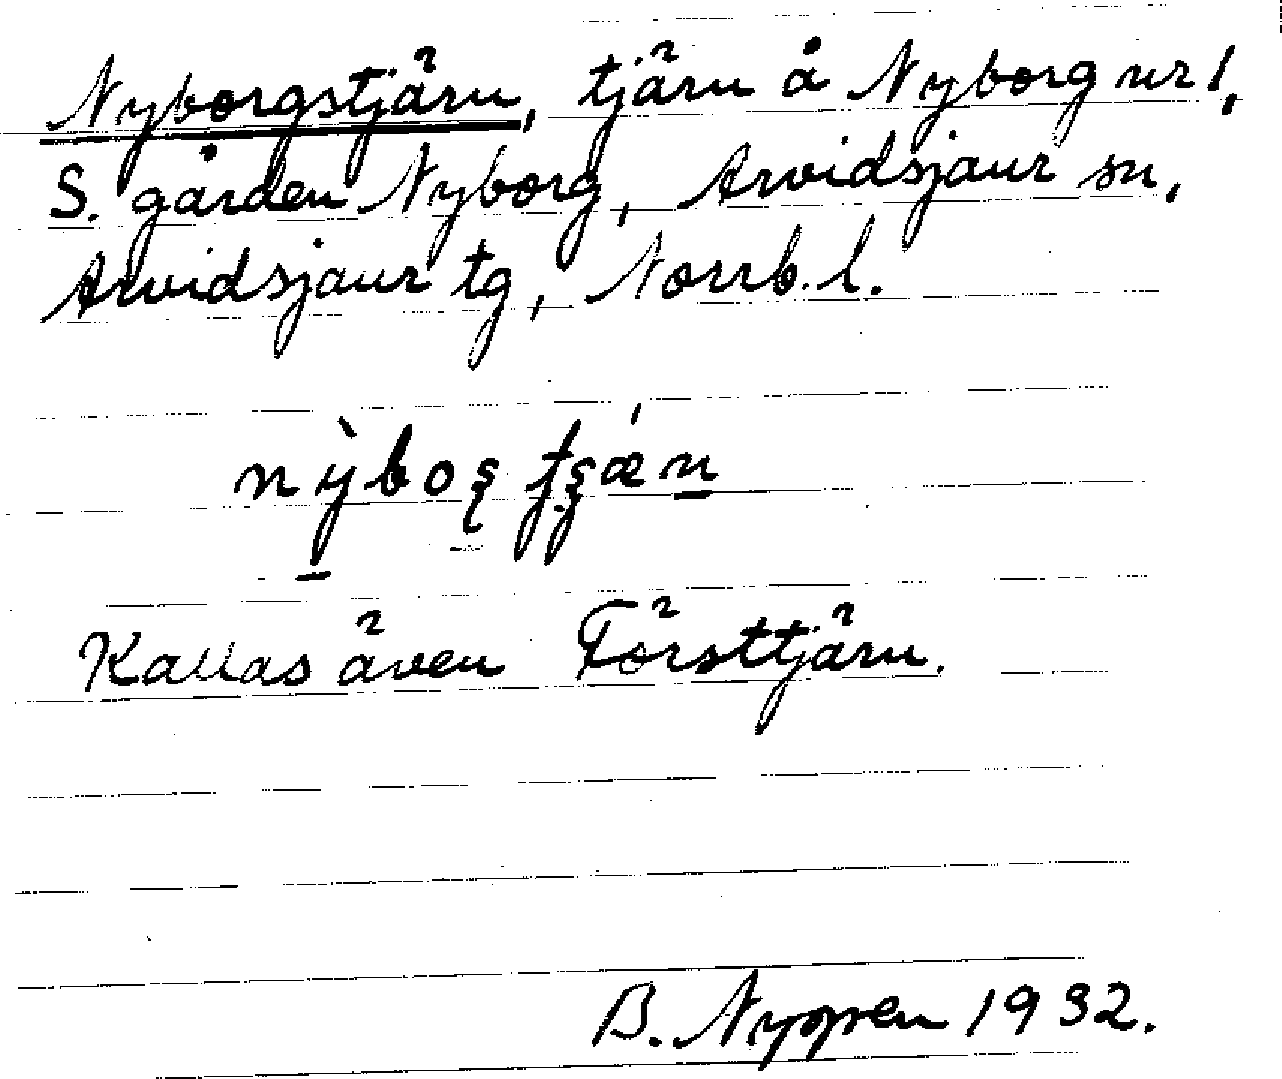 Nyborgstjärn, tjärn å Nyborg nr 1,
S. gården Nyborg, Arvidsjaur sn,
Arvidsjaur tg, Norrb. l.
Kallas även Försttjärn.
B. Nyppen 1932.